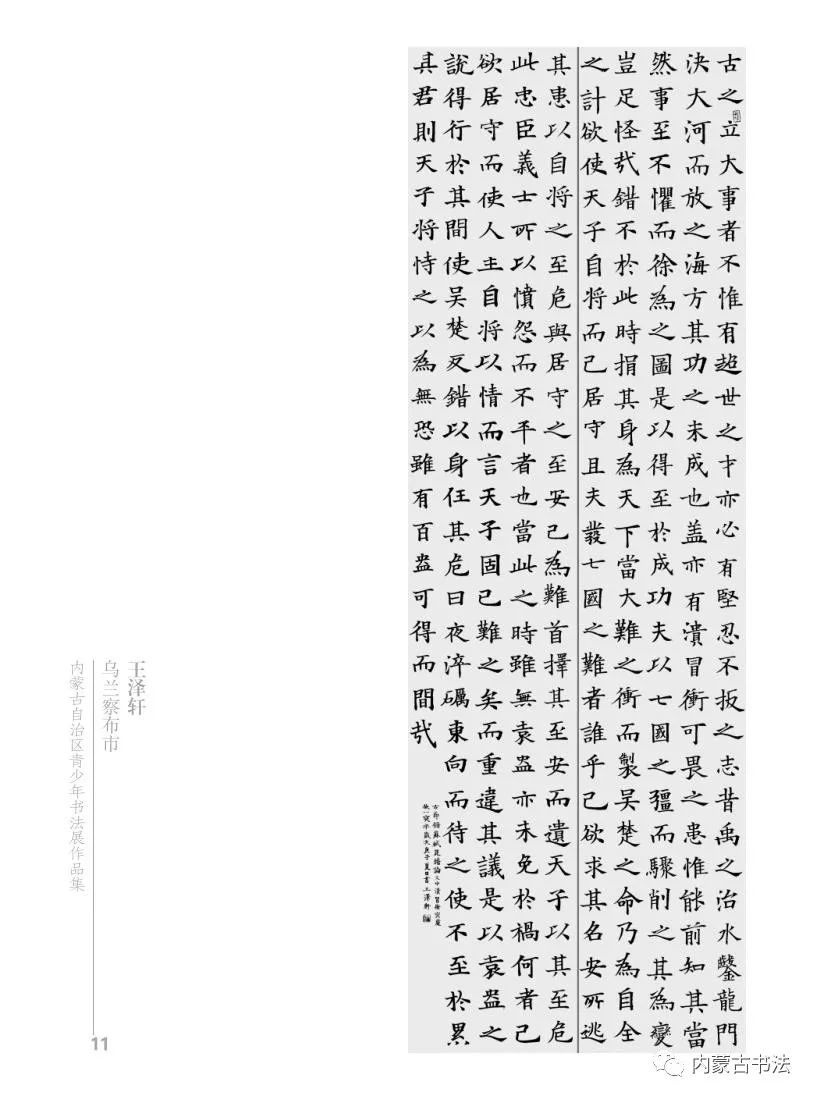 古之立大事者不惟有超世之才亦必有堅忍不拔之志昔禹之治水鑿龍門
決大河而放之海方其功之未成也盖亦有潰冒衝可畏之患惟能前知其當
然事至不懼而徐為之圖是以得至於成功夫以七國之彊而驟削之其為變
豈足怪哉錯不於此時捐其身為天下當大難之衝而製吳楚之命乃為自全
之計欲使天子自將而己居守且夫發七國之難者誰乎己欲求其名安所逃
其患以自將之至危與居守之至安己為難首擇其至安而遺天子以其至危
此忠臣義士所以憤怨而不平者也當此之時雖無袁盎亦未免於禍何者己
欲居守而使人主自將以情而言天子固已難之矣而重違其議是以袁盎之
說得行於其間使吳楚反錯以身任其危日夜淬礪東向而待之使不至於累
其君則天子將恃之以為無恐雖有百盎可得而間哉
古節錄蘇軾晁錯論文中潰冒衝突處
缺一突字歲次庚子夏日書王澤軒
王泽轩
乌兰察布市
内蒙古自治区青少年书法展作品集
11
内蒙古书法